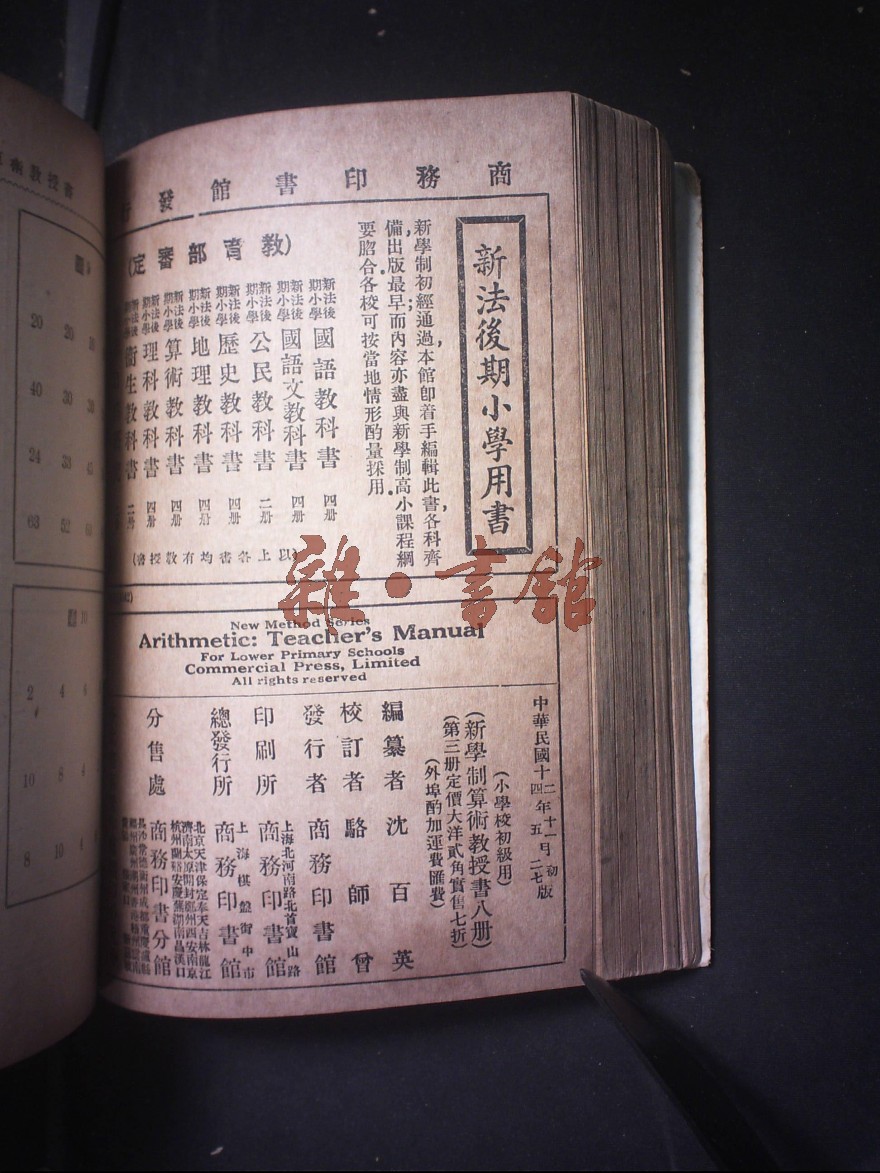 商務印書館發行
新法後期小學用書
新學制初經通過,本館卽着手編輯此書,各科齊
備出版最早;而內容亦盡與新學制高小課程綱
要脗合各校可按當地情形酌量採用。
(教育部審定)
新法後期小學 國語教科書 四册
新法後期小學 國語文教科書 四册
新法後期小學 公民教科書 二册
新法後期小學 歷史教科書 四册
新法後期小學 地理教科書 四册
新法後期小學 算術教科書 四册
新法後期小學 理科教科書 四册
新法後期小學 衛生教科書 二册
(以上各書均有教授書)
雜·書館
New Method Series
Arithmetic: Teacher's Manual
For Lower Primary Schools
Commercial Press, Limited
All rights reserved
中華民國十二年十一月初版
十四年五月二七版
(小學校初級用)
(新學制算術教授書八册)
(第三册定價大洋貳角實售七折)
(外埠酌加運費匯費)
編纂者 沈百英
校訂者 駱師曾
發行者 商務印書館
印刷所 上海北河南路北首寶山路 商務印書館
總發行所 上海棋盤街中市 商務印書館
分售處 商務印書分館
北京天津保定奉天吉林龍江
濟南太原開封鄭州西安南京
杭州蘭谿安慶蕪湖南昌漢口
術教授書
20 20
40 30
24 33
63 52
10
2 4
10 8 4
8 10